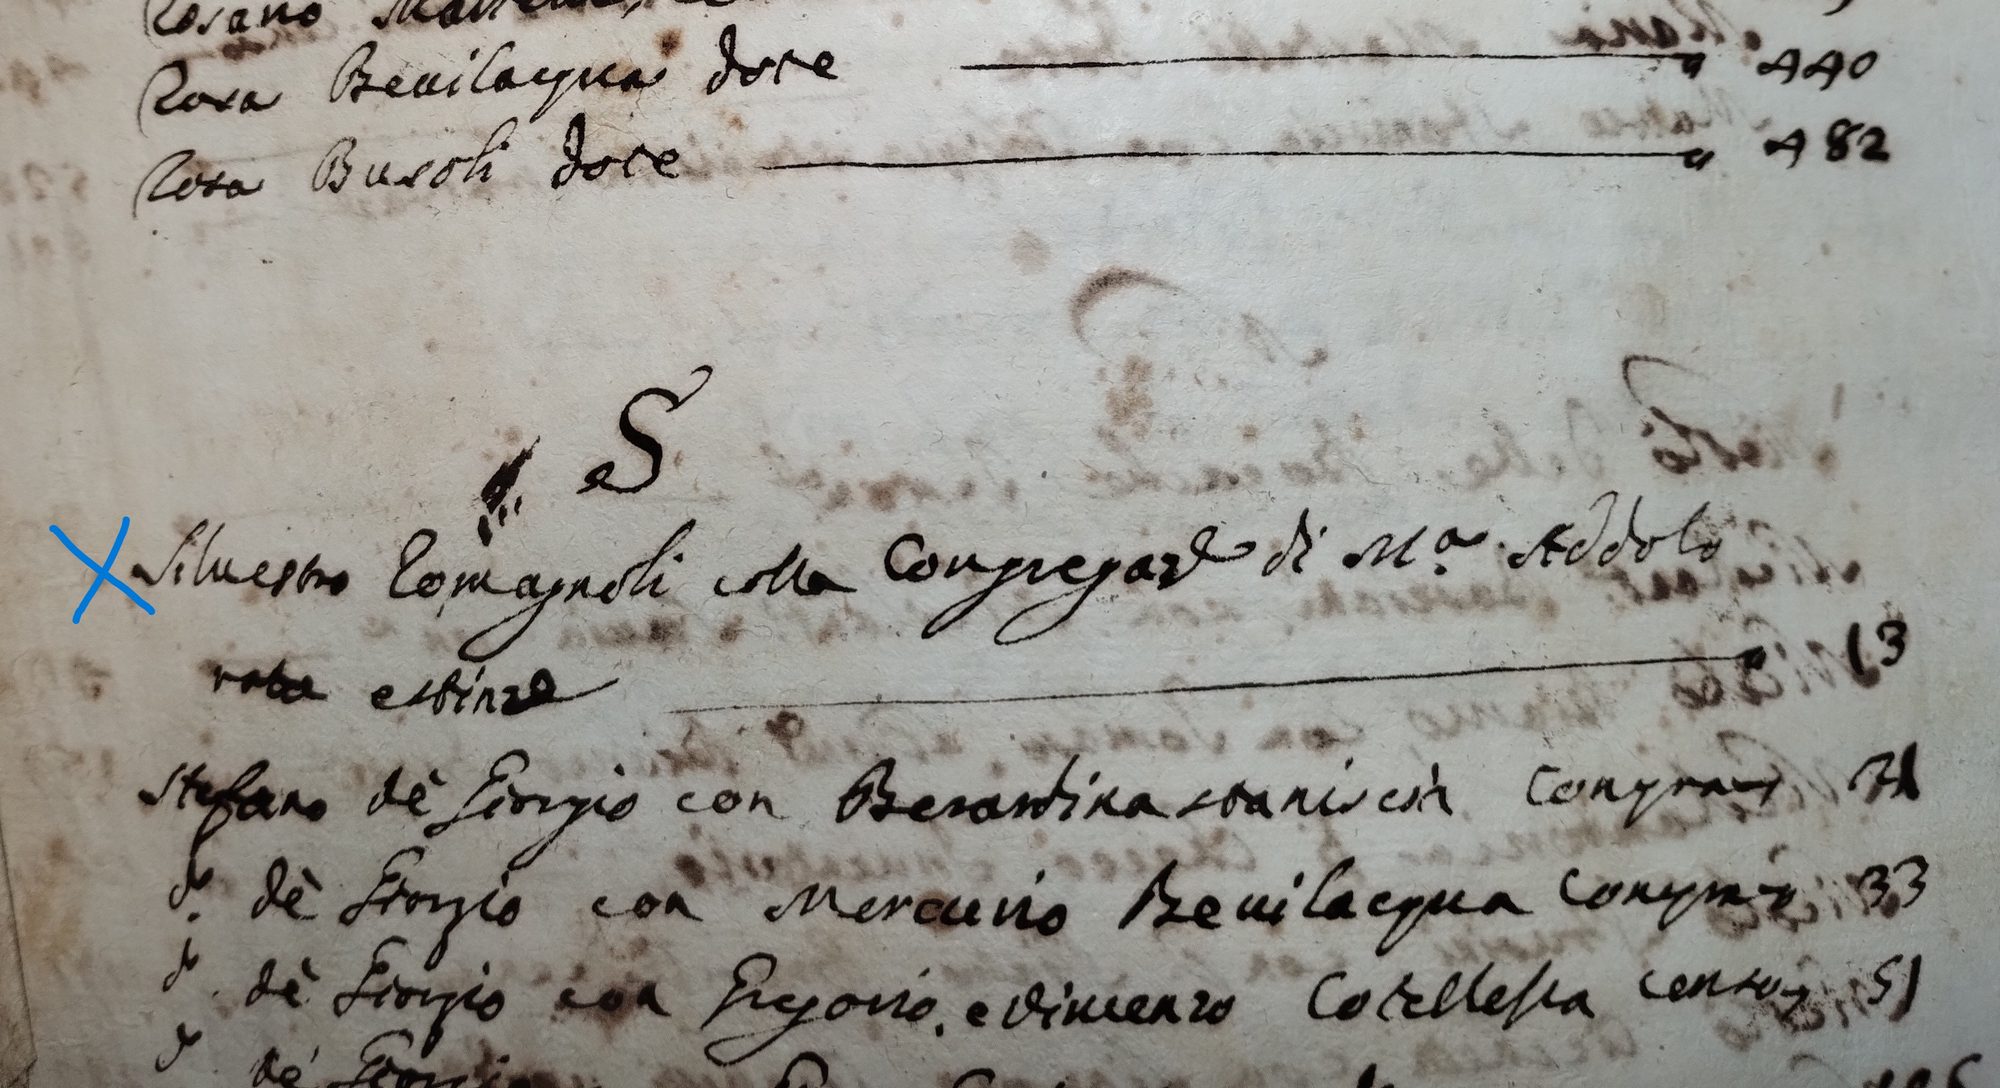 Rosano
Rosa Beuilacqua dote 440
Rosa Busoli dote 482
S
Siluestro Romagnoli colla Congregaze di Ma. Addolo
rata estinze 13
Stefano dè Giorgio con Berardina staniscia Compra 71
do. dè Giorgio con Mercurio Beuilacqua Compra 33
do. dè Giorgio con Gregorio, e dimenzo Cotellessa censo 51
do dè Giorgio